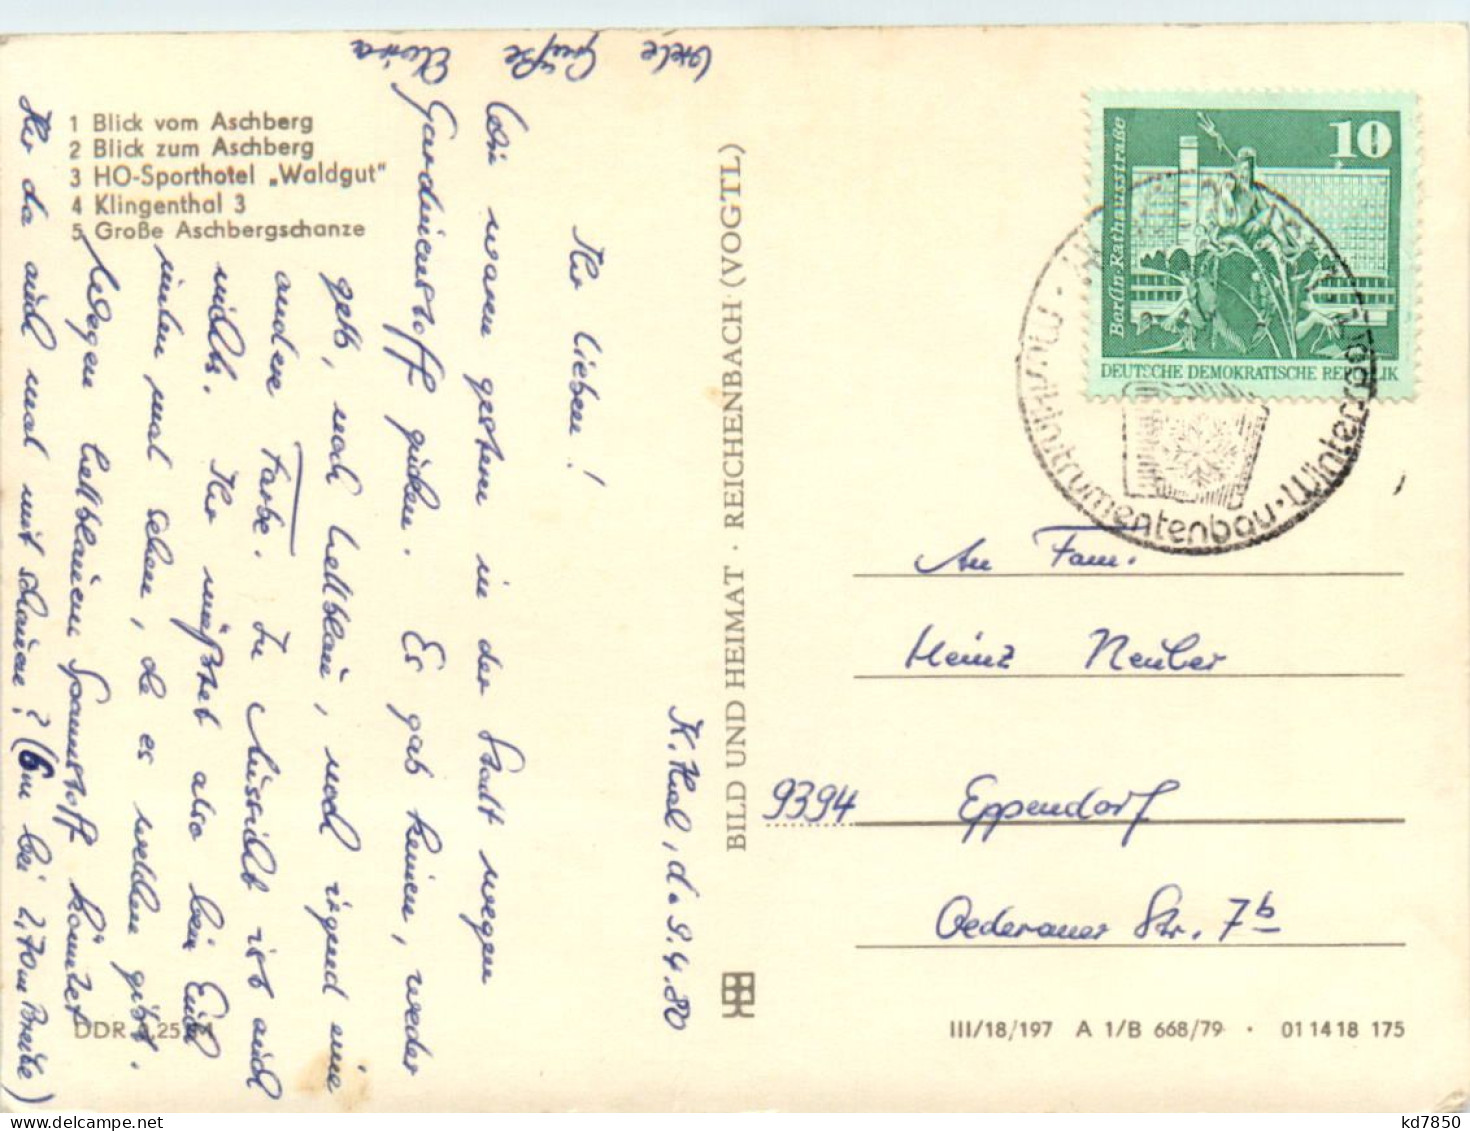 1 Blick vom Aschberg
2 Blick zum Aschberg
3 HO-Sporthotel „Waldgut"
4 Klingenthal 3
5 Große Aschbergschanze
K.thal, d. 9.4.80
Ihr Lieben!
Wir waren gestern in der Stadt wegen
Gardinenstoff gucken. Es gab keinen, weder
gelb, noch hellblau, noch irgend eine
andere Farbe. In Aussicht ist auch
nichts. Ihr müßtet also bei Euch
unten mal sehen, ob es welchen gibt.
Wegen hellblauem Spannstoff könntet
Ihr da auch mal mit schauen? (6m bei 2,70m Breite)
Viele Grüße
BILD UND HEIMAT · REICHENBACH (VOGTL)
10
Berlin-Rathausstraße
DEUTSCHE DEMOKRATISCHE REPUBLIK
Musikinstrumentenbau · Wintersport
An Fam.
Heinz Neuber
9394 Eppendorf
Oederaner Str. 7b
DDR 0,25 M
III/18/197 A 1/B 668/79 · 01 14 18 175
kd7850